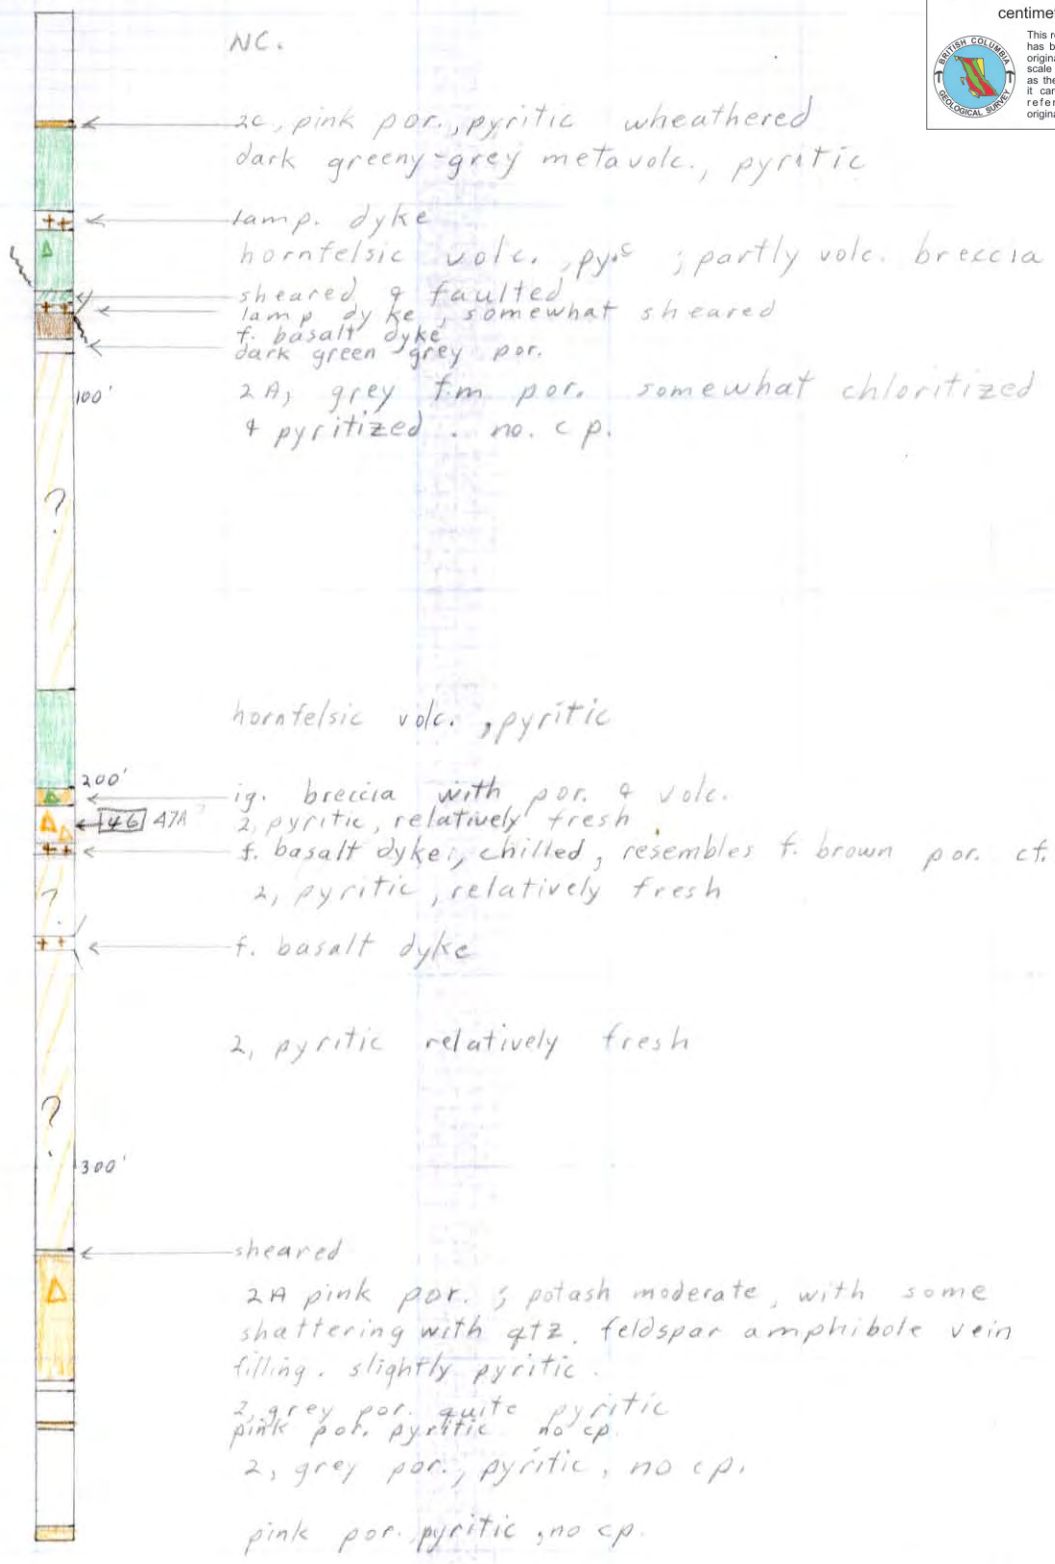 centime
This r
has b
origina
scale
as the
it car
refer
origina
BRITISH COLUMBIA
GEOLOGICAL SURVEY
NC.
2c, pink por., pyritic wheathered
dark greeny-grey metavolc., pyritic
lamp. dyke
hornfelsic volc., py.c ; partly volc. breccia
sheared & faulted
lamp dyke, somewhat sheared
f. basalt dyke
dark green-grey por.
100'
2A, grey f.m por. somewhat chloritized
& pyritized. no. cp.
?
hornfelsic volc., pyritic
200'
ig. breccia with por. & volc.
46 47A
2, pyritic, relatively fresh
f. basalt dyke, chilled, resembles f. brown por. cf.
2, pyritic, relatively fresh
?
f. basalt dyke
2, pyritic relatively fresh
?
300'
sheared
2A pink por. ; potash moderate, with some
shattering with qtz. feldspar amphibole vein
filling. slightly pyritic.
2, grey por. quite pyritic
pink por. pyritic no cp.
2, grey por., pyritic, no cp.
pink por. pyritic, no cp.